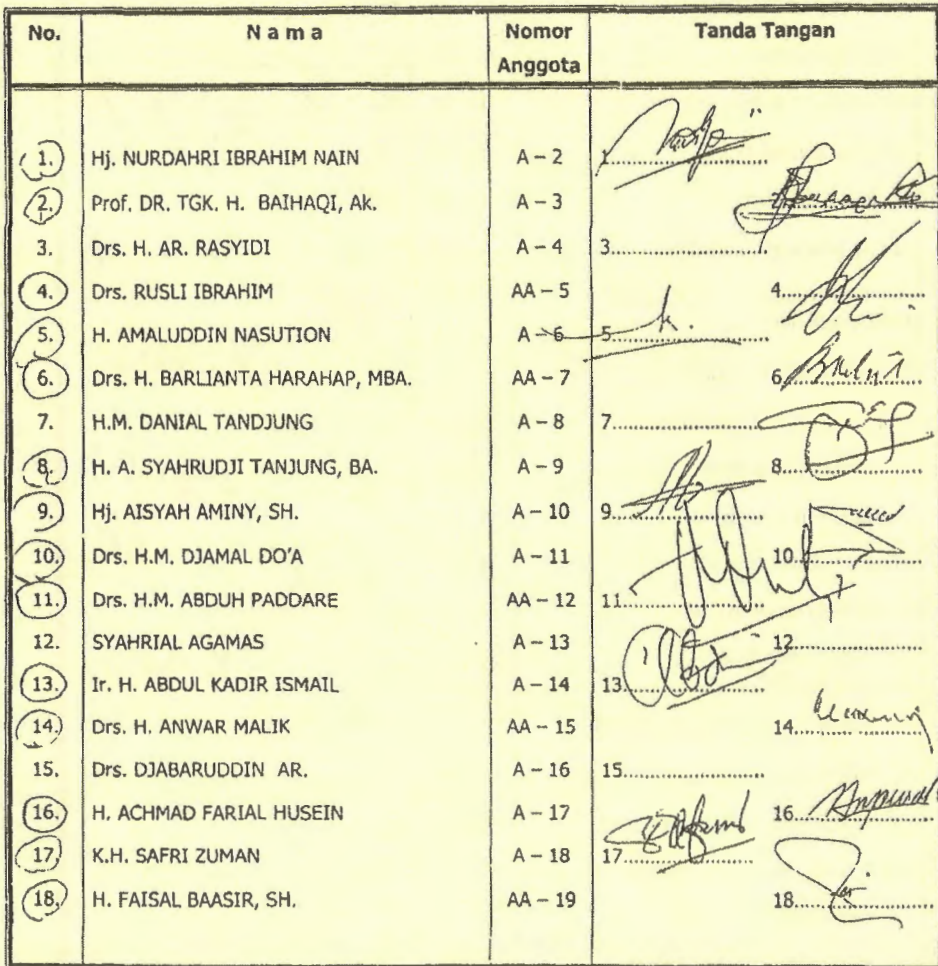 No. N a m a Nomor Anggota Tanda Tangan
1. Hj. NURDAHRI IBRAHIM NAIN A – 2 1.....................
2. Prof. DR. TGK. H. BAIHAQI, Ak. A – 3
3. Drs. H. AR. RASYIDI A – 4 3.....................
4. Drs. RUSLI IBRAHIM AA – 5 4.....................
5. H. AMALUDDIN NASUTION A – 6 5.....................
6. Drs. H. BARLIANTA HARAHAP, MBA. AA – 7 6.....................
7. H.M. DANIAL TANDJUNG A – 8 7.....................
8. H. A. SYAHRUDJI TANJUNG, BA. A – 9 8.....................
9. Hj. AISYAH AMINY, SH. A – 10 9.....................
10. Drs. H.M. DJAMAL DO'A A – 11 10.....................
11. Drs. H.M. ABDUH PADDARE AA – 12 11.....................
12. SYAHRIAL AGAMAS A – 13 12.....................
13. Ir. H. ABDUL KADIR ISMAIL A – 14 13.....................
14. Drs. H. ANWAR MALIK AA – 15 14.....................
15. Drs. DJABARUDDIN AR. A – 16 15.....................
16. H. ACHMAD FARIAL HUSEIN A – 17 16.....................
17. K.H. SAFRI ZUMAN A – 18 17.....................
18. H. FAISAL BAASIR, SH. AA – 19 18.....................